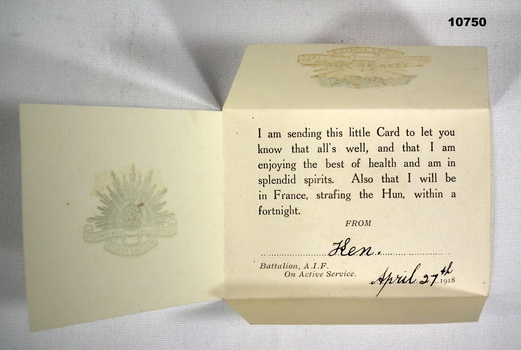 10750
I am sending this little Card to let you
know that all's well, and that I am
enjoying the best of health and am in
splendid spirits. Also that I will be
in France, strafing the Hun, within a
fortnight.
FROM
Ken.
Battalion, A.I.F.
On Active Service.
April 27th 1918